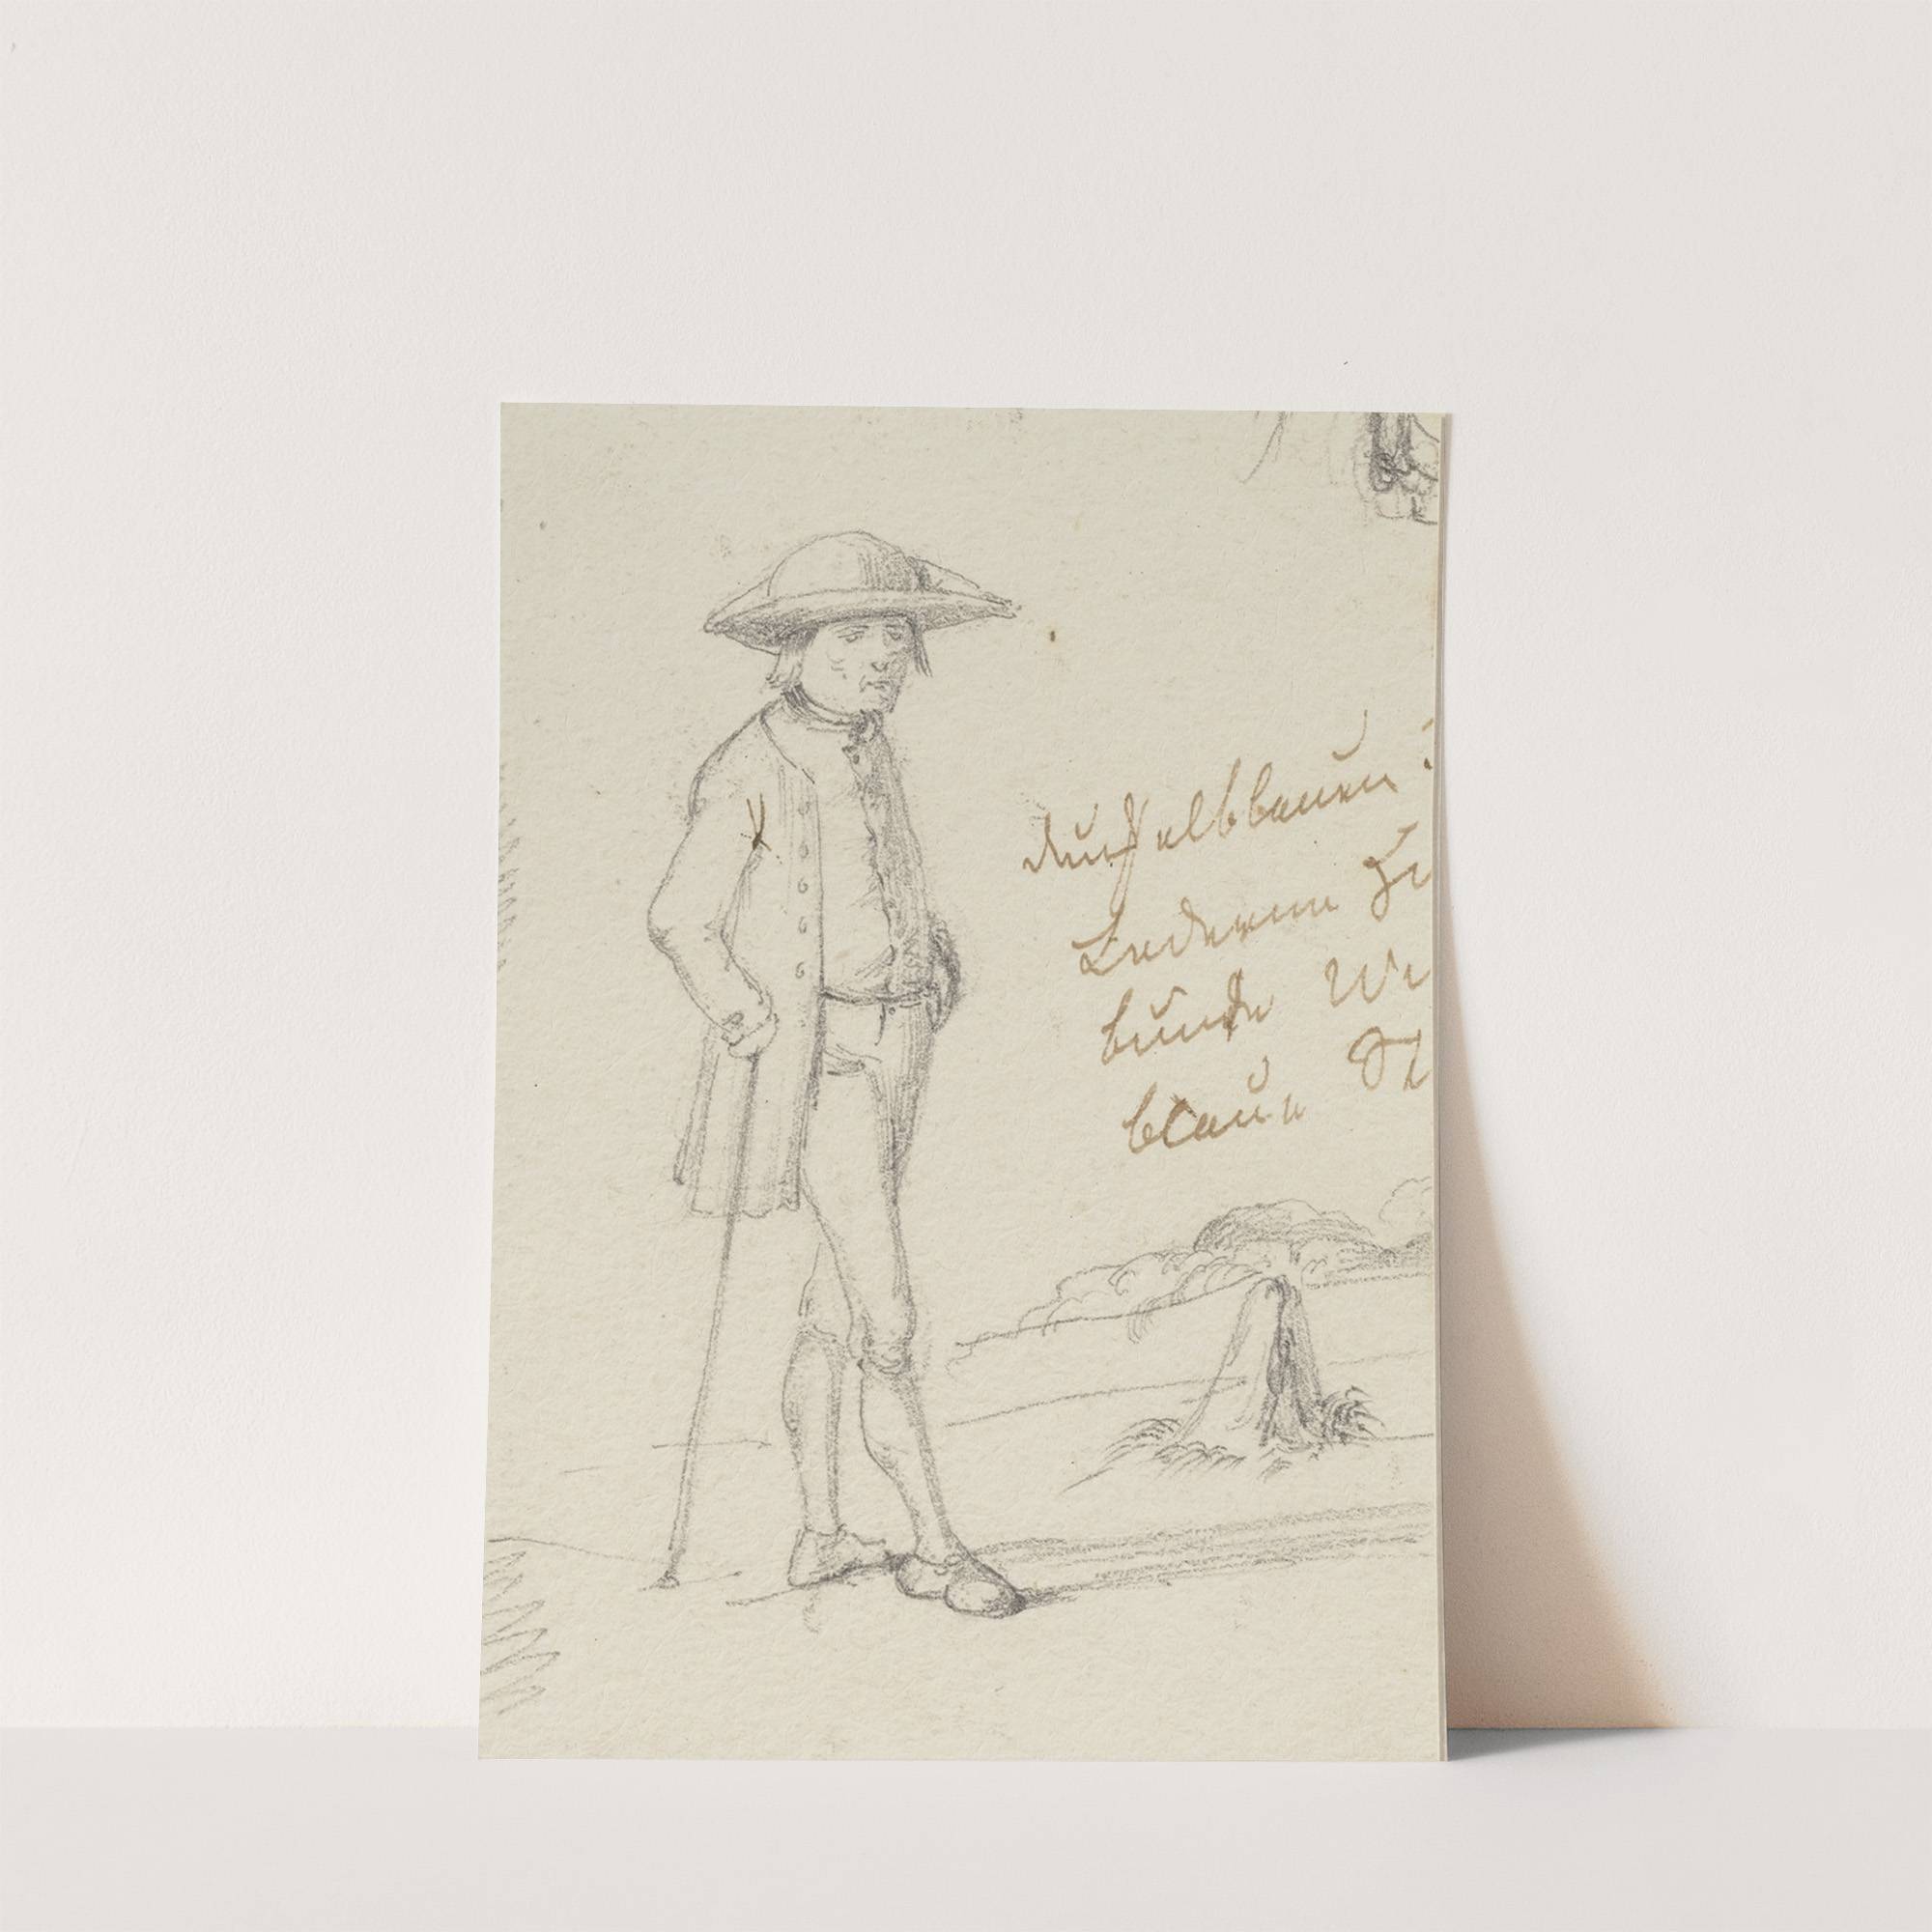 dunkelblauen
Lederne
bunte We
blaue St